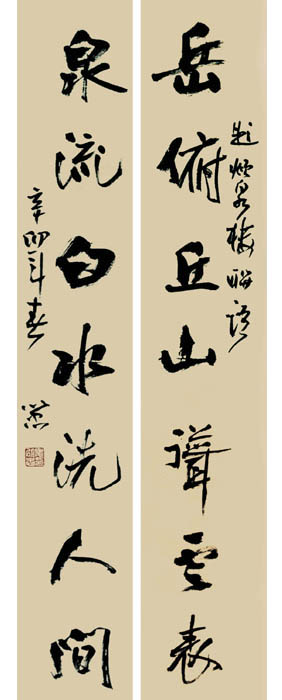 泉樓聯語
岳俯丘山聳云表
泉流白水洗人間
辛卯年春